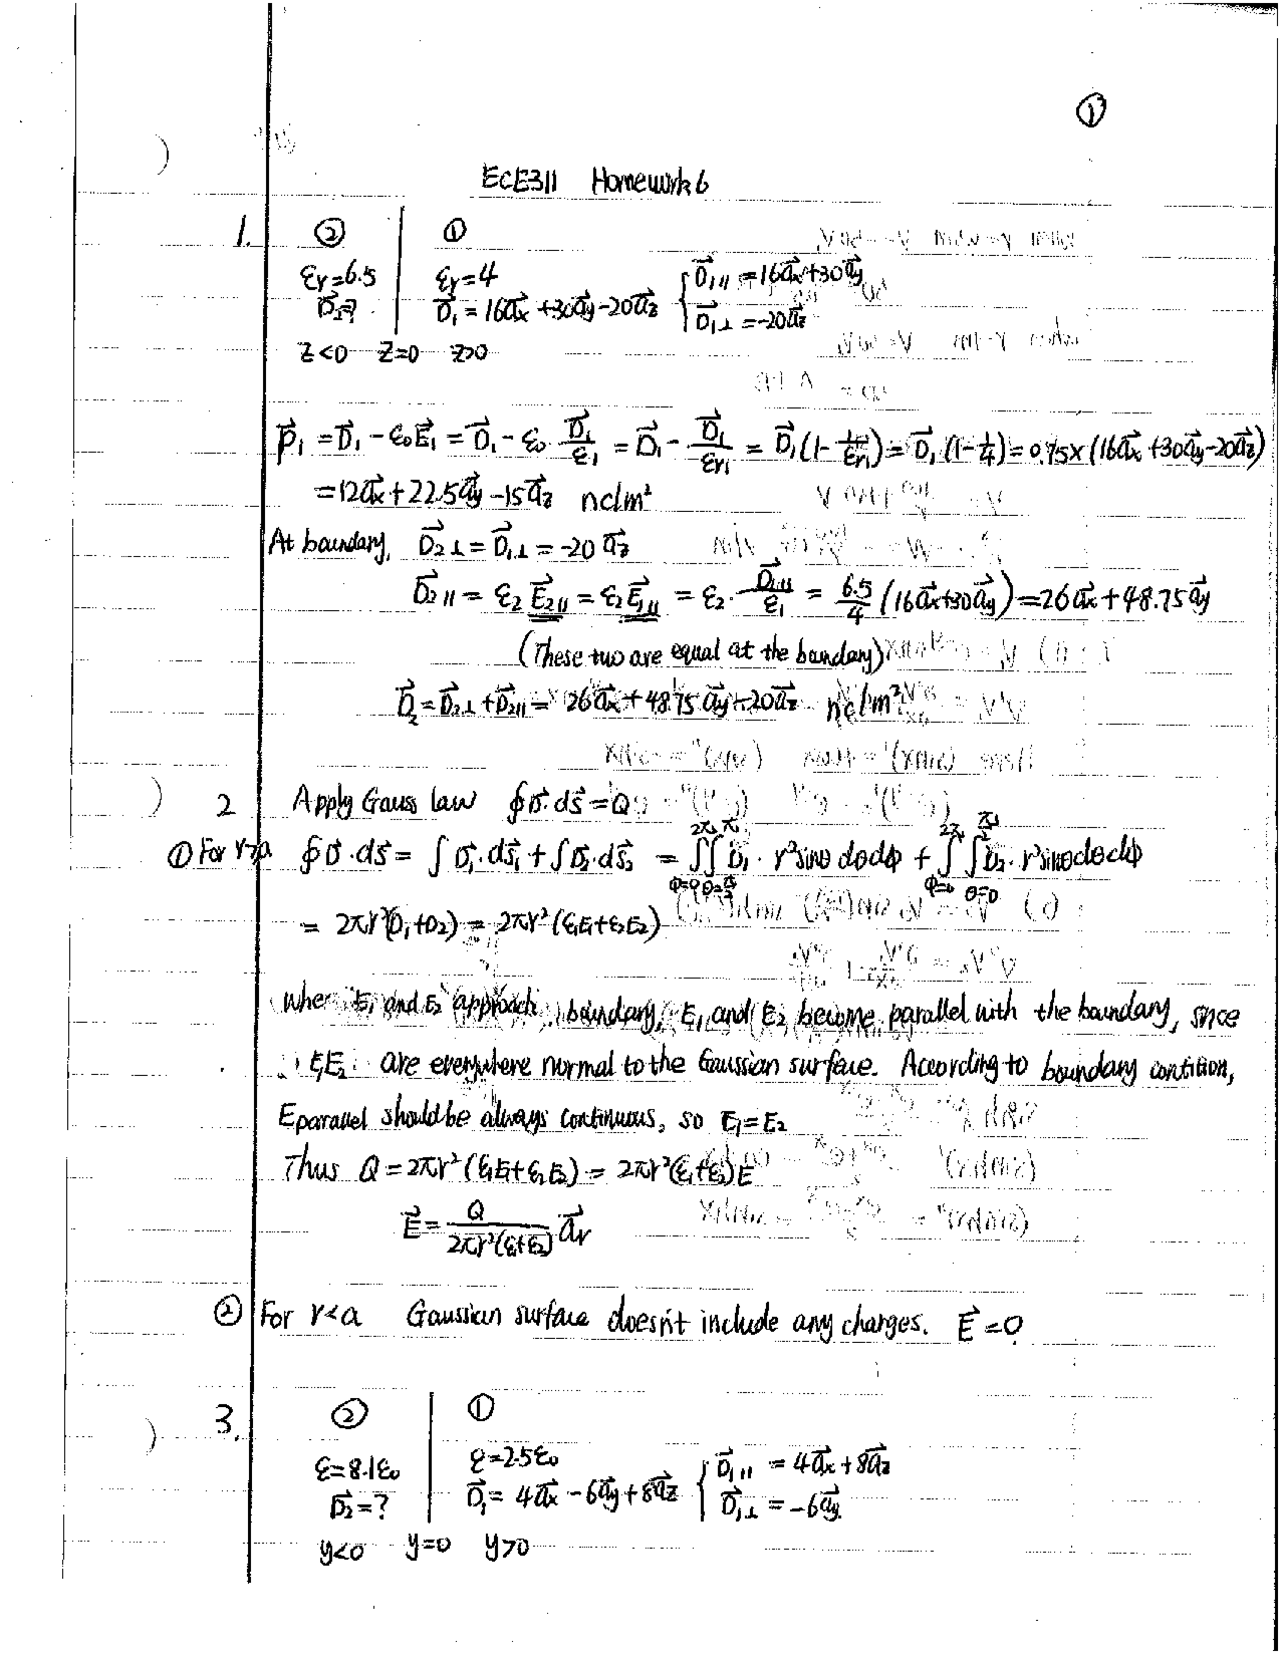 ①
ECE311 Homework 6
1. ② | ①
εr=6.5 | εr=4 { D⃗1∥ = 16a⃗x+30a⃗y
D⃗2=? | D⃗1 = 16a⃗x+30a⃗y-20a⃗z { D⃗1⊥ = -20a⃗z
z<0 z=0 z>0
P⃗1 = D⃗1 - ε0E⃗1 = D⃗1 - ε0·D⃗1/ε1 = D⃗1 - D⃗1/εr1 = D⃗1(1-1/εr1) = D⃗1(1-1/4) = 0.75×(16a⃗x+30a⃗y-20a⃗z)
= 12a⃗x+22.5a⃗y-15a⃗z nc/m²
At boundary, D⃗2⊥ = D⃗1⊥ = -20a⃗z
D⃗2∥ = ε2E⃗2∥ = ε2E⃗1∥ = ε2·D⃗1∥/ε1 = 6.5/4 (16a⃗x+30a⃗y) = 26a⃗x+48.75a⃗y
(These two are equal at the boundary)
D⃗2 = D⃗2⊥+D⃗2∥ = 26a⃗x+48.75a⃗y-20a⃗z nc/m²
2 Apply Gauss law ∮D⃗·ds⃗=Q
① For r>a ∮D⃗·ds⃗ = ∫D⃗1·ds⃗1 + ∫D⃗2·ds⃗2 = ∫_{φ=0}^{2π}∫_{θ=π/2}^{π} D1·r²sinθdθdφ + ∫_{φ=0}^{2π}∫_{θ=0}^{π/2} D2·r²sinθdθdφ
= 2πr²(D1+D2) = 2πr²(ε1E1+ε2E2)
when E1 and E2 approach boundary, E1 and E2 become parallel with the boundary, since
E1E2 are everywhere normal to the Gaussian surface. According to boundary contition,
Eparallel should be always continuous, so E1=E2
Thus Q = 2πr²(ε1E1+ε2E2) = 2πr²(ε1+ε2)E
E⃗ = Q/2πr²(ε1+ε2) a⃗r
② For r<a Gaussian surface doesn't include any charges. E⃗=0
3. ② | ①
ε=8.1ε0 | ε=2.5ε0 { D⃗1∥ = 4a⃗x+8a⃗z
D⃗2=? | D⃗1= 4a⃗x-6a⃗y+8a⃗z { D⃗1⊥ = -6a⃗y
y<0 y=0 y>0